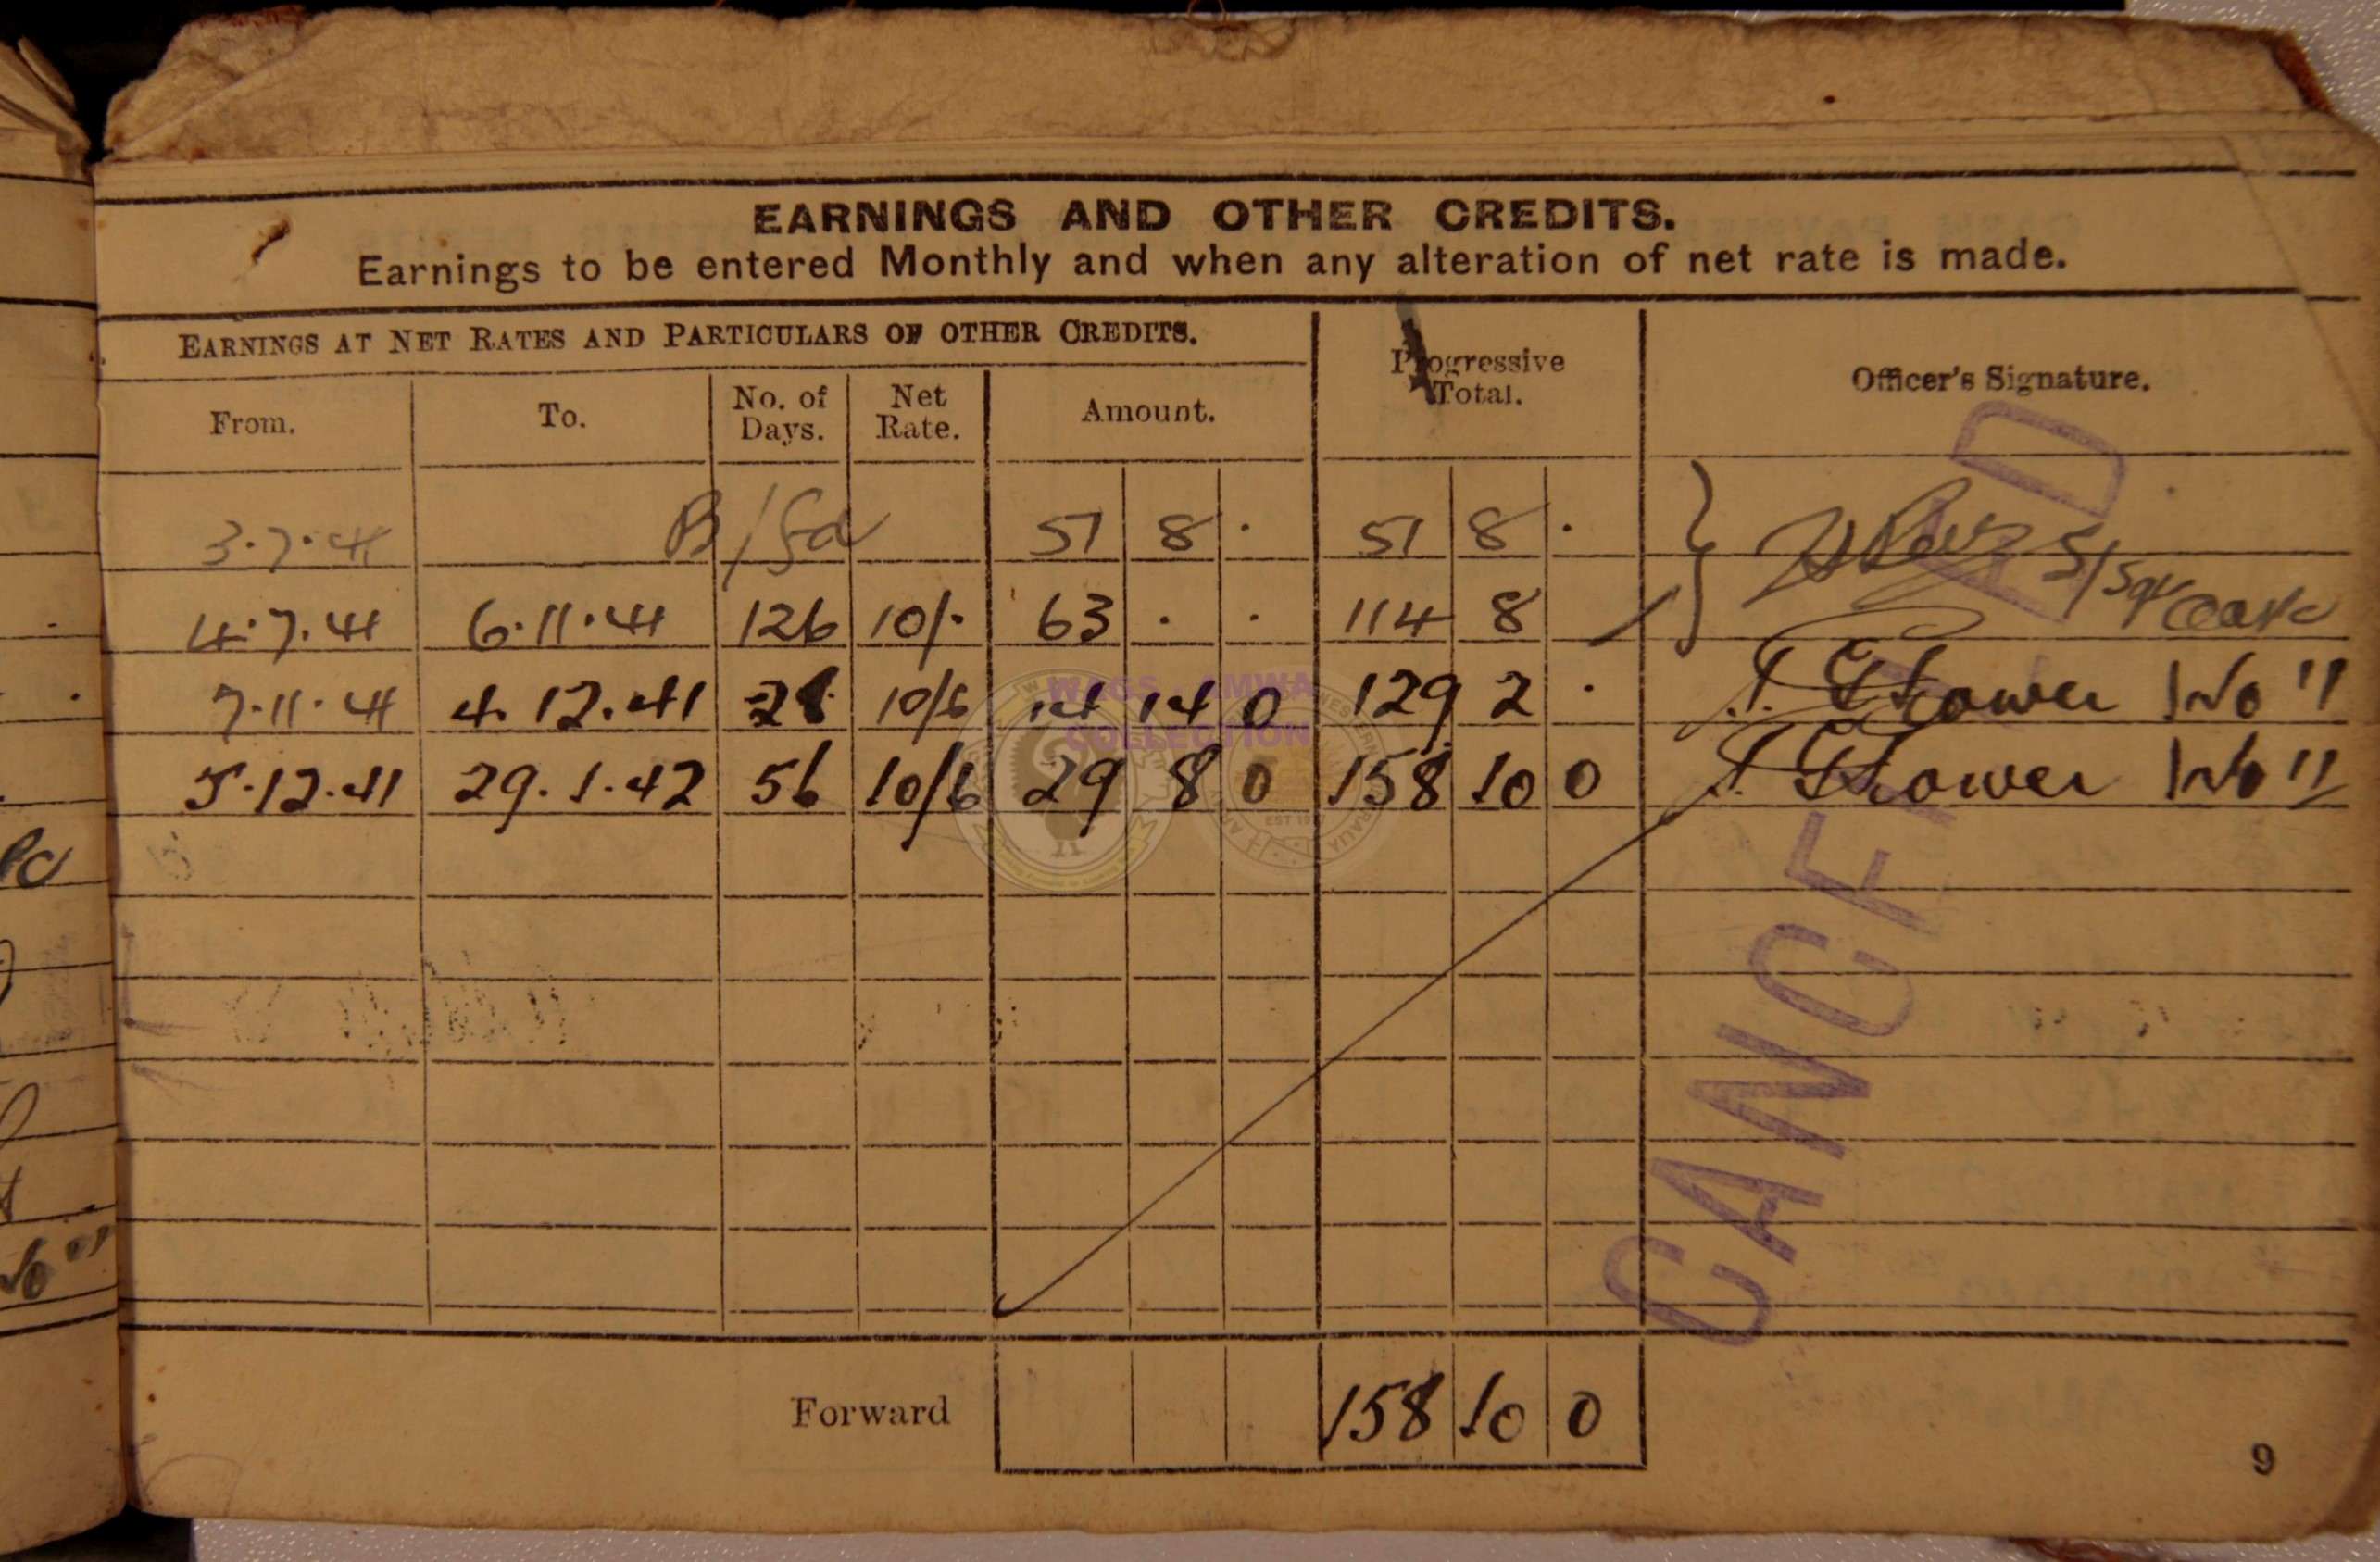 EARNINGS AND OTHER CREDITS.
Earnings to be entered Monthly and when any alteration of net rate is made.
EARNINGS AT NET RATES AND PARTICULARS OF OTHER CREDITS. Progressive Total. Officer's Signature.
From. To. No. of Days. Net Rate. Amount.
3.7.41 B/Fd 51 8 . 51 8 .
4.7.41 6.11.41 126 10/. 63 . . 114 8 S/Sgt
7.11.41 4.12.41 28 10/6 14 14 0 129 2 .
5.12.41 29.1.42 56 10/6 29 8 0 158 10 0
WAGS AMWA
COLLECTION
CANCELLED
Forward 158 10 0
9